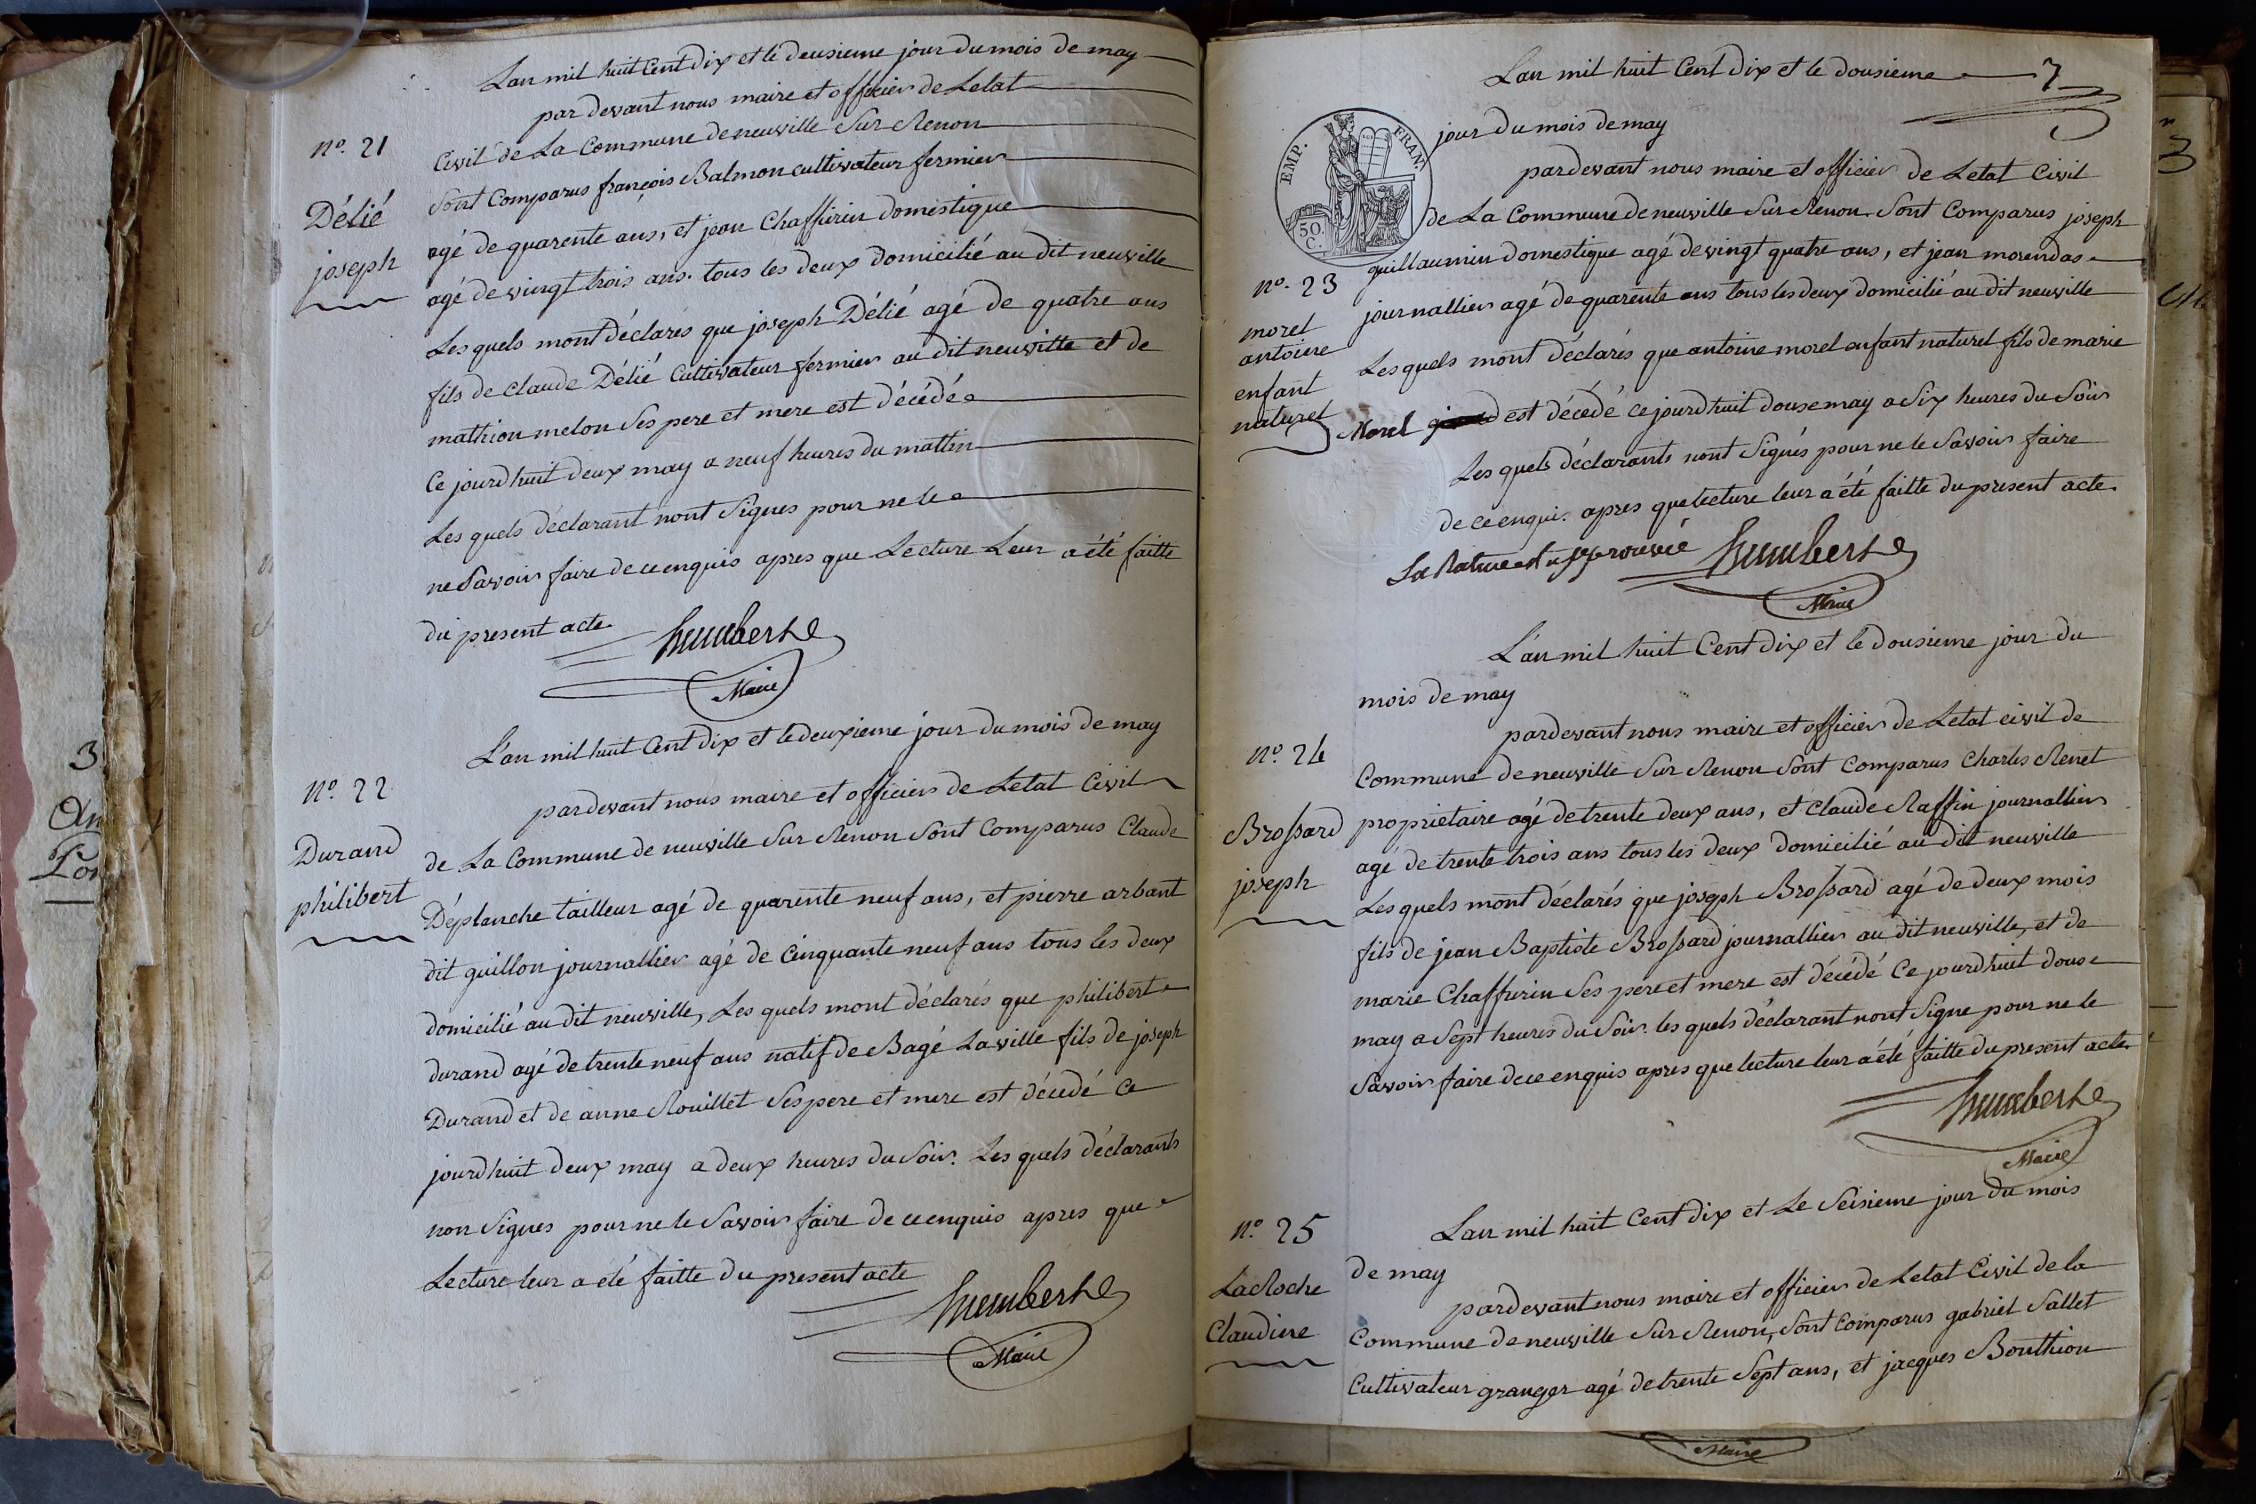 Lan mil huit Cent Dix et le Deusieme jour du mois de may
par devant nous maire et officier de Letat
nº. 21
Civil de La Commune de neuville Sur Renon
Sont Comparus françois Balmon cultivateur fermier
Délié
joseph
agé de quarente ans, et jean Chaffurin domestique
agé de vingt trois ans. tous les deux domicilié au dit neuville
Les quels mont Déclarés que joseph Délié agé de quatre ans
fils de claude Délié Cultivateur fermier au dit neuville et de
mathion melon Ses pere et mere est décédé
Ce jourdhuit deux may a neuf heures du mattin
Les quels déclarant nont Signes pour ne le
ne Savoir faire de ce enquis apres que Lecture Leur a été faitte
du present acte.
humbert
Maire
L'an mil huit Cent Dix et le deuxieme jour du mois de may
nº. 22
Durand
philibert
pardevant nous maire et officier de Letat Civil
de La Commune de neuville Sur Renon Sont Comparus Claude
Déplanche tailleur agé de quarente neuf ans, et pierre arbant
dit guillon journallier agé de Cinquante neuf ans tous les deux
domicilié au dit neuville, Les quels mont déclarés que philibert
durand agé de trente neuf ans natif de Bagé Laville fils de joseph
Durand et de anne Rouillet Ses pere et mere est décédé Ce
jourdhuit deux may a deux heures du Soir. Les quels déclarants
non Signes pour ne le Savoir faire de ce enquis apres que
Lecture leur a été faitte du present acte
humbert
Maire
Lan mil huit Cent Dix et le dousieme
7
EMP. FRAN.
50. C.
jour Du mois de may
pardevant nous maire et officier de Letat Civil
de La Commune de neuville Sur Renon Sont Comparus joseph
guillaumin domestique agé de vingt quatre ans, et jean morendas
nº. 23
morel
antoine
enfant
naturel
journallier agé de quarente ans tous les deux domicilié au dit neuville
Les quels mont déclarés que antoine morel enfant naturel fils de marie
Morel est décédé ce jourdhuit douse may a Six heures du Soir
Les quels déclarants nont Signés pour ne le Savoir faire
de ce enquis. apres que lecture leur a été faitte du present acte.
La Rature est approuvée
humbert
Maire
L'an mil huit Cent Dix et le dousieme jour du
mois de may
nº. 24
Brossard
joseph
pardevant nous maire et officier de Letat civil de
Commune de neuville Sur Renon Sont Comparus Charles Renet
proprietaire agé de trente deux ans, et Claude Raffin journallier
agé de trente trois ans tous les deux domicilié au dit neuville
Les quels mont déclarés que joseph Brossard agé de deux mois
fils de jean Baptiste Brossard journallier au dit neuville, et de
marie Chaffurin Ses pere et mere est décédé Ce jourdhuit douse
may a Sept heures du Soir. les quels déclarant nont Signe pour ne le
Savoir faire de ce enquis apres que lecture leur a été faitte du present acte.
humbert
Maire
nº. 25
LaRoche
Claudine
Lan mil huit Cent Dix et Le Seisieme jour du mois
de may
pardevant nous maire et officier de Letat Civil de la
Commune de neuville Sur Renon, Sont Comparus gabriel Sallet
Cultivateur granger agé de trente Sept ans, et jacques Bonthion
Maire